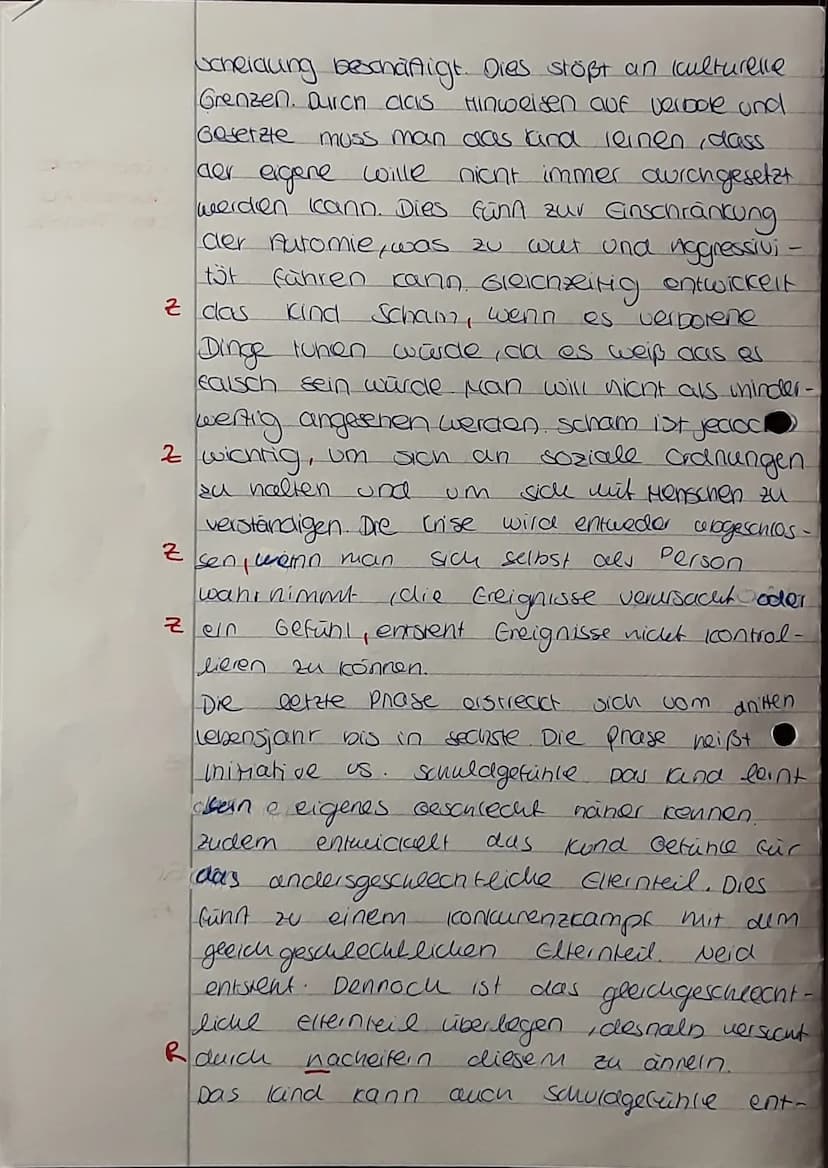 scheidung beschäftigt. Dies stößt an kulturelle
Grenzen. Durch das Hinweisen auf Verbote und
Gesetzte muss man das Kind lernen, dass
der eigene Wille nicht immer durchgesetzt
werden kann. Dies führt zur Einschränkung
der Automie, was zu Wut und Aggressivi-
tät führen kann. Gleichzeitig entwickelt
Z das Kind Scham, wenn es verbotene
Dinge tuhen würde, da es weiß das es
falsch sein würde. Man will nicht als minder-
wertig angesehen werden. Scham ist jedoc
Z wichtig, um sich an soziale Ordnungen
zu halten und um sich mit Menschen zu
verständigen. Die Krise wird entweder abgeschlos-
Z sen, wenn man sich selbst als Person
wahrnimmt, die Ereignisse verursacht oder
Z ein Gefühl, entsteht Ereignisse nicht kontrol-
lieren zu können.
Die letzte Phase erstreckt sich vom dritten
Lebensjahr bis in sechste. Die Phase heißt
Initiative vs. Schuldgefühle. Das Kind lernt
sein e eigenes Geschlecht näher kennen.
Zudem entwickelt das Kind Gefühle für
das andersgeschlechtliche Elternteil. Dies
führt zu einem Konkurenzkampf mit dem
gleichgeschlechtlichen Elternteil. Neid
entsteht. Dennoch ist das gleichgeschlecht-
liche Elternteil überlegen, deshalb versucht
R durch nacheifern diesem zu ähneln.
Das Kind kann auch Schuldgefühle ent-